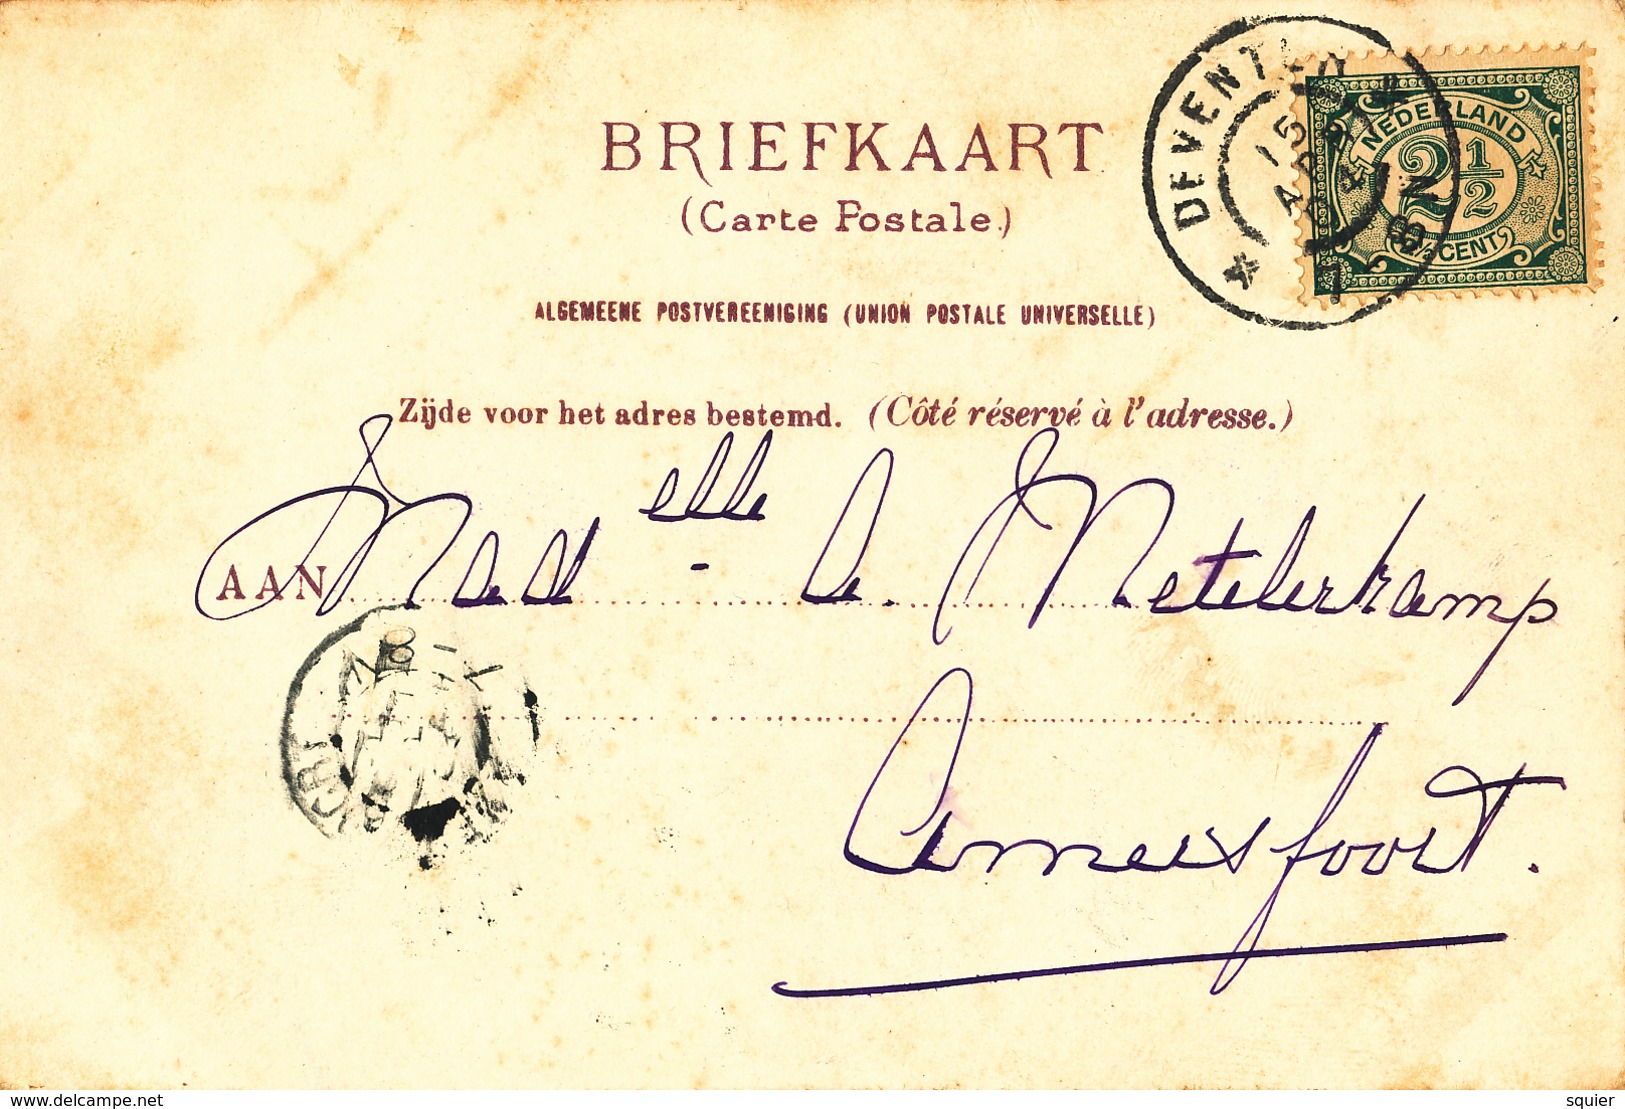 BRIEFKAART
(Carte Postale.)
ALGEMEENE POSTVEREENIGING (UNION POSTALE UNIVERSELLE)
Zijde voor het adres bestemd. (Côté réservé à l'adresse.)
DEVENTER
NEDERLAND
2 1/2
2½CENT
AAN Madelle - A. Metelerkamp
Amersfoort.
delcampe.net
squier